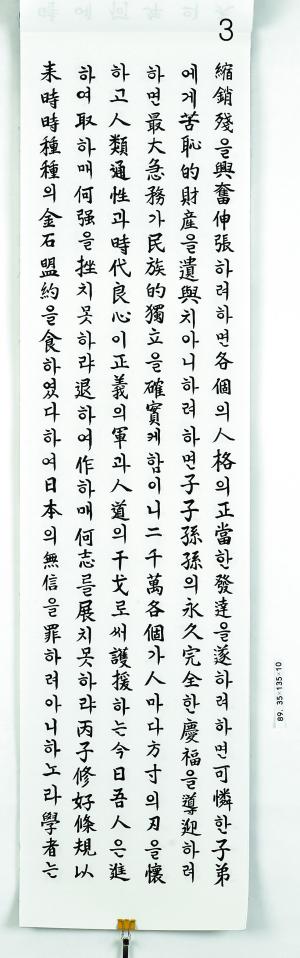 3
縮銷殘을興奮伸張하려하면各個의人格의正當한發達을遂하려하면可憐한子弟
에게苦恥的財産을遺與치아니하려하면子子孫孫의永久完全한慶福을導迎하려
하면最大急務가民族的獨立을確實케함이니二千萬各個가人마다方寸의刃을懷
하고人類通性과時代良心이正義의軍과人道의干戈로써護援하는今日吾人은進
하여取하매何强을挫치못하랴退하여作하매何志를展치못하랴丙子修好條規以
来時時種種의金石盟約을食하였다하여日本의無信을罪하려아니하노라學者는
89. 35×135×10